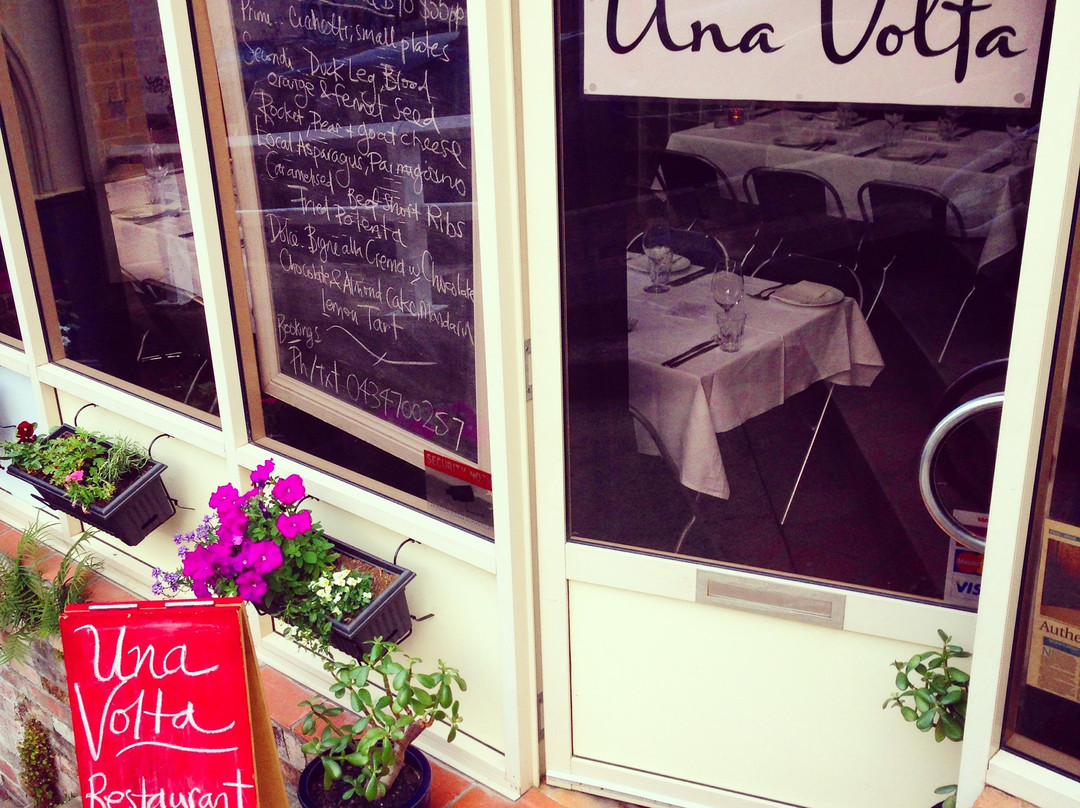 Una Volta
Prime... Cichetti, small plates
Secondi... Duck Leg, Blood
orange & fennel seed
Rocket, Pear + goat cheese
Local Asparagus, Parmigiano
Caramelised Beef Short Ribs
Fried Polenta
Dolce.. Bigne alla Crema w Chocolate
Chocolate & Almond Cake, Mandarin
lemon Tart
Bookings
Ph/txt 0434700257
SECURITY NOT
VISA
Authe
Una
Volta
Restaurant